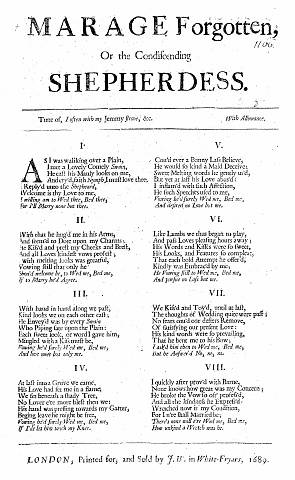 MARAGE Forgotten,
Or the Condiscending
SHEPHERDESS.
1106.
2
Tune of, I often with my Jenny strove, &c. With Allowance.
I.
AS I was walking over a Plain,
I met a Lovely Comely Swain,
He cast his
Welcome is thy Love to me,
I willing am to Wed thee, Bed thee;
for I'll Marry none but thee.
II.
With that he hug'd me in his Arms,
And seem'd to Dote upon my Charms;
He Kiss'd and prest my Cheeks and Brest,
And all Loves kindest vows profest;
Vowing still that only he
Should welcome be, to Wed me, Bed me,
If to Marry he'd Agree.
III.
With hand in hand along we past,
Kind looks we on each other cast;
Who Piping sat upon the Plain:
Each sweet look, or word I gave him,
Mingled with a Kiss must be,
Vowing he'd surely Wed me, Bed me,
And love none but only me.
IV.
At last into a Grove we enter'd,
His Love had set me in a flame;
We sat beneath a shady Tree,
No Lover e're more blest then we:
His hand was pressing towards my Garter,
Beging leave he might be free,
Vowing he'd surely Wed me, Bed me,
If I'd let him touch my Knee.
V.
Cou'd ever a Bonny Lass Believe,
He wou'd so kind a Maid Deceive:
Sweet Melting words he gently us'd,
But yet at last his Love abus'd:
I inflam'd with such Affection,
He such Speeches us'd to me,
Vowing he'd surely Wed me, Bed me,
And desired no Love but me.
VI.
Like Lambs we that began to play,
And past Loves pleasing hours away;
His Words and Kisses were so sweet,
His Looks, and Features so compleat;
That each bold Attempt he offer'd,
Kindly was Embrac'd by me,
He Vowing still to Wed me, Bed me,
And forsake no Lass but me.
VII.
We Kiss'd and Toy'd, until at last,
The thoughts of Wedding quite were past;
No fears cou'd our desires Remove,
Of satisfying our present Love:
His kind words were so prevailing,
That he bent me to his Bow;
I ask'd him then to Wed me, Bed me,
But he Answer'd No, no, no.
VIII.
I quickly after prov'd with Barne,
None knows how great was my Concern;
He broke the Vow so oft' profess'd,
And all the kindness he Express'd:
Wretched now is my Condition,
For I ne'er shall Married be;
There's none will e're Wed me, Bed me,
How unkind a Wretch was he.
LONDON, Printed for, and Sold by J. W. in White-Fryars, 1689.